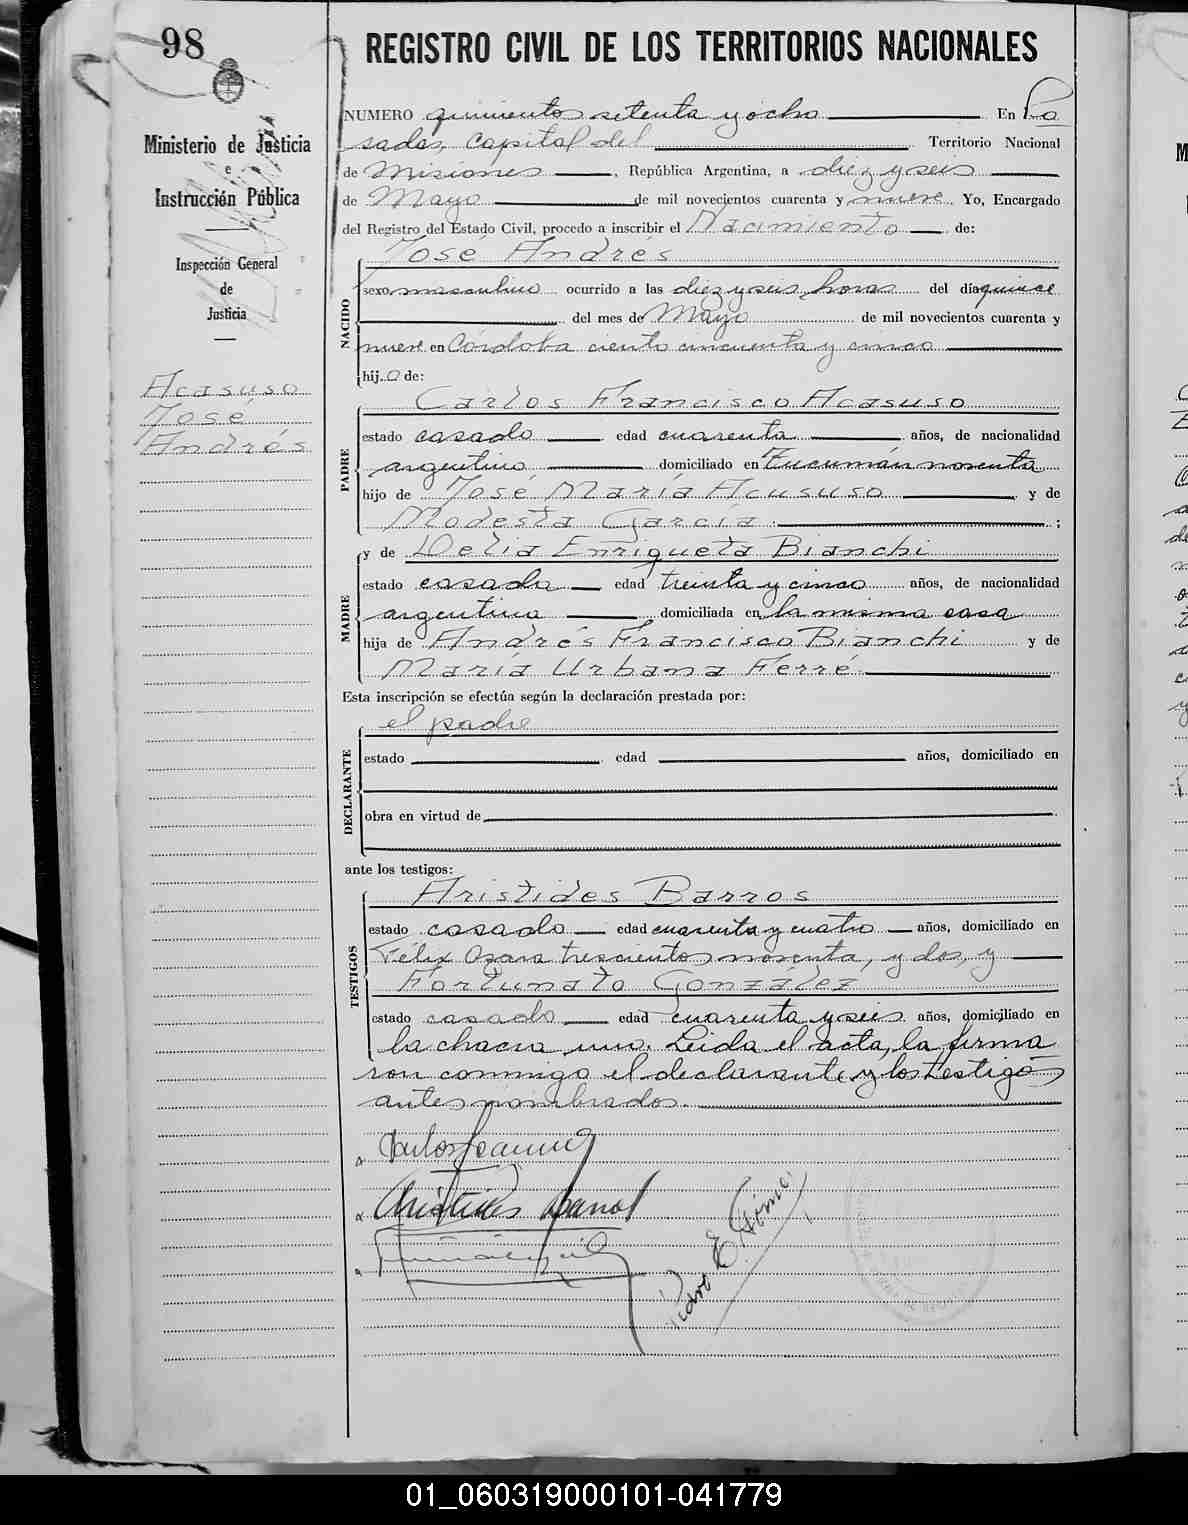 98
REGISTRO CIVIL DE LOS TERRITORIOS NACIONALES
Ministerio de Justicia
e
Instrucción Pública
Inspección General
de
Justicia
Acasuso
José
Andrés
NUMERO quinientos setenta y ocho En Po
sadas, Capital del Territorio Nacional
de Misiones, República Argentina, a diez y seis
de Mayo de mil novecientos cuarenta y nueve. Yo, Encargado
del Registro del Estado Civil, procedo a inscribir el Nacimiento de:
NACIDO
José Andrés
sexo masculino ocurrido a las diez y seis horas del día quince
del mes de Mayo de mil novecientos cuarenta y
nueve en Córdoba ciento cincuenta y cinco
hijo de:
PADRE
Carlos Francisco Acasuso
estado casado edad cuarenta años, de nacionalidad
argentino domiciliado en Tucumán noventa
hijo de José María Acususo y de
Modesta García ;
MADRE
y de Delia Enriqueta Bianchi
estado casada edad treinta y cinco años, de nacionalidad
argentina domiciliada en la misma casa
hija de Andrés Francisco Bianchi y de
María Urbana Ferré.
Esta inscripción se efectúa según la declaración prestada por:
DECLARANTE
el padre
estado edad años, domiciliado en
obra en virtud de
ante los testigos:
TESTIGOS
Aristides Barros
estado casado edad cuarenta y cuatro años, domiciliado en
Félix Azara trescientos noventa, y dos, y
Fortunato González
estado casado edad cuarenta y seis años, domiciliado en
la chacra uno. Leida el acta, la firma
ron conmigo el declarante y los testigos
antes nombrados.
Aristides Barros
Pedro E.
01_060319000101-041779